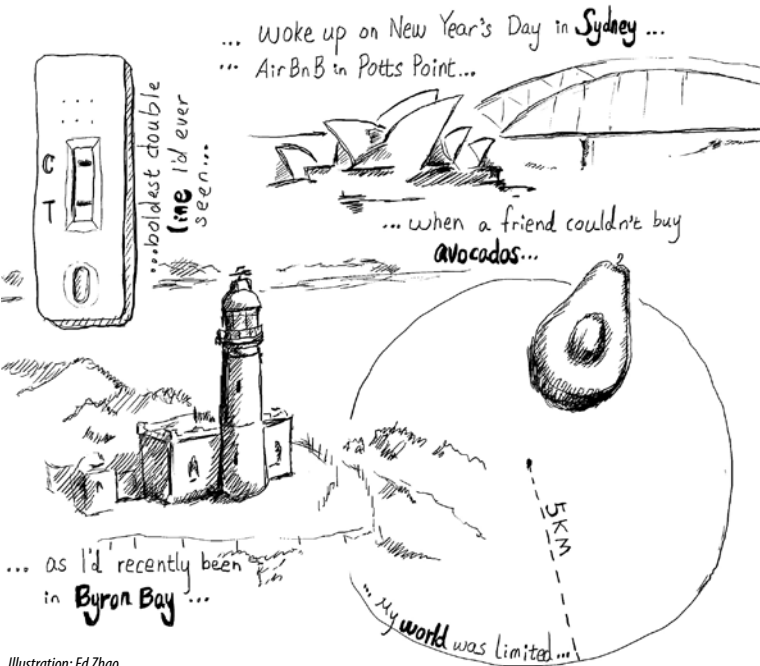 ... woke up on New Year's Day in Sydney ...
... AirBnB in Potts Point...
C
T
...boldest double
line I'd ever
seen...
...when a friend couldn't buy
avocados...
5KM
... as I'd recently been
in Byron Bay ...
... My world was limited...
Illustration: Ed Zhao